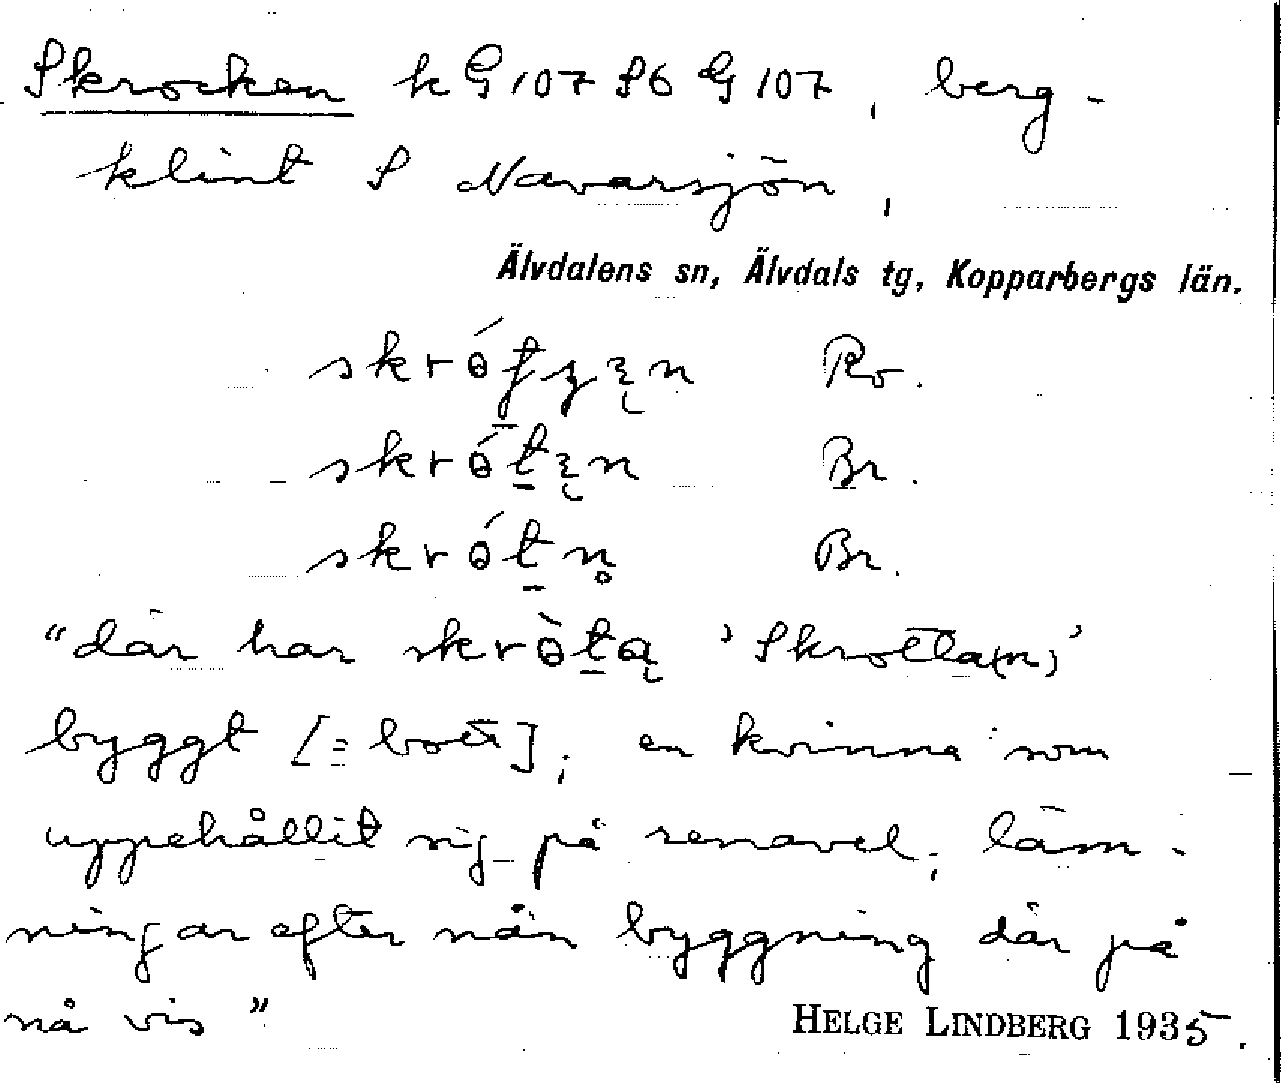 Skrocken k G 107 S6 G 107, berg-
klint S Navarsjön,
Älvdalens sn, Älvdals tg, Kopparbergs län.
Ro.
Br.
Br.
"där har 'Skrotta(n)'
byggt [= bott], en kvinna som
uppehållit sig på renavel, läm-
ningar efter nån byggning där på
nå vis"
HELGE LINDBERG 1935.